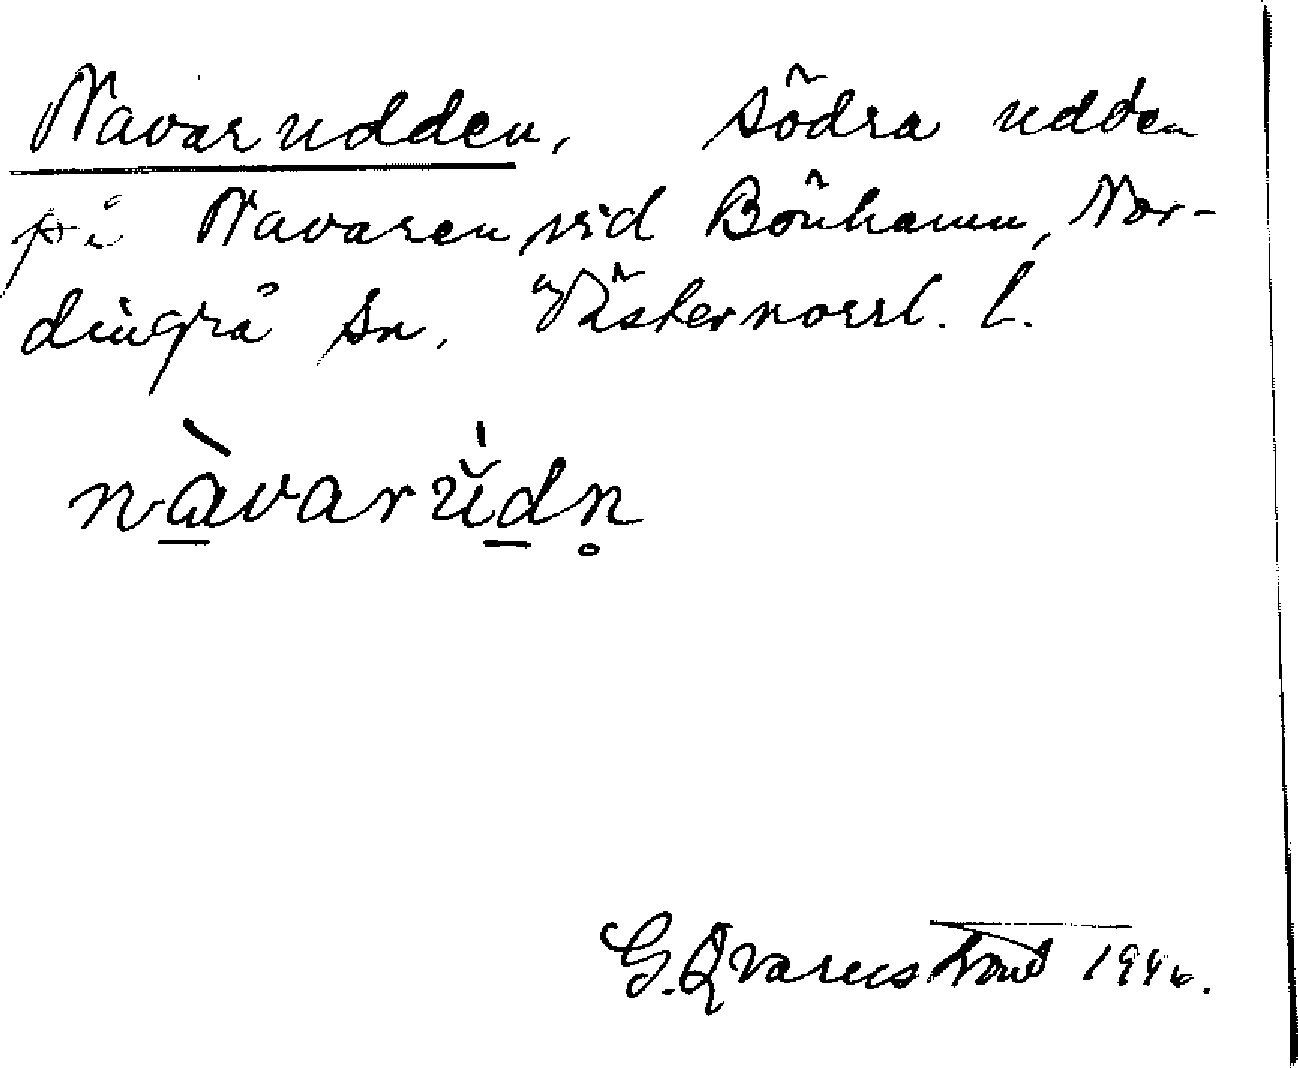 Navarudden, södra udden
på Navaren vid Bönhamn, Nor-
dingrå sn. Västernorrl. l.
nàvarŭ̍dn̥
G. Qvarnström 1946.